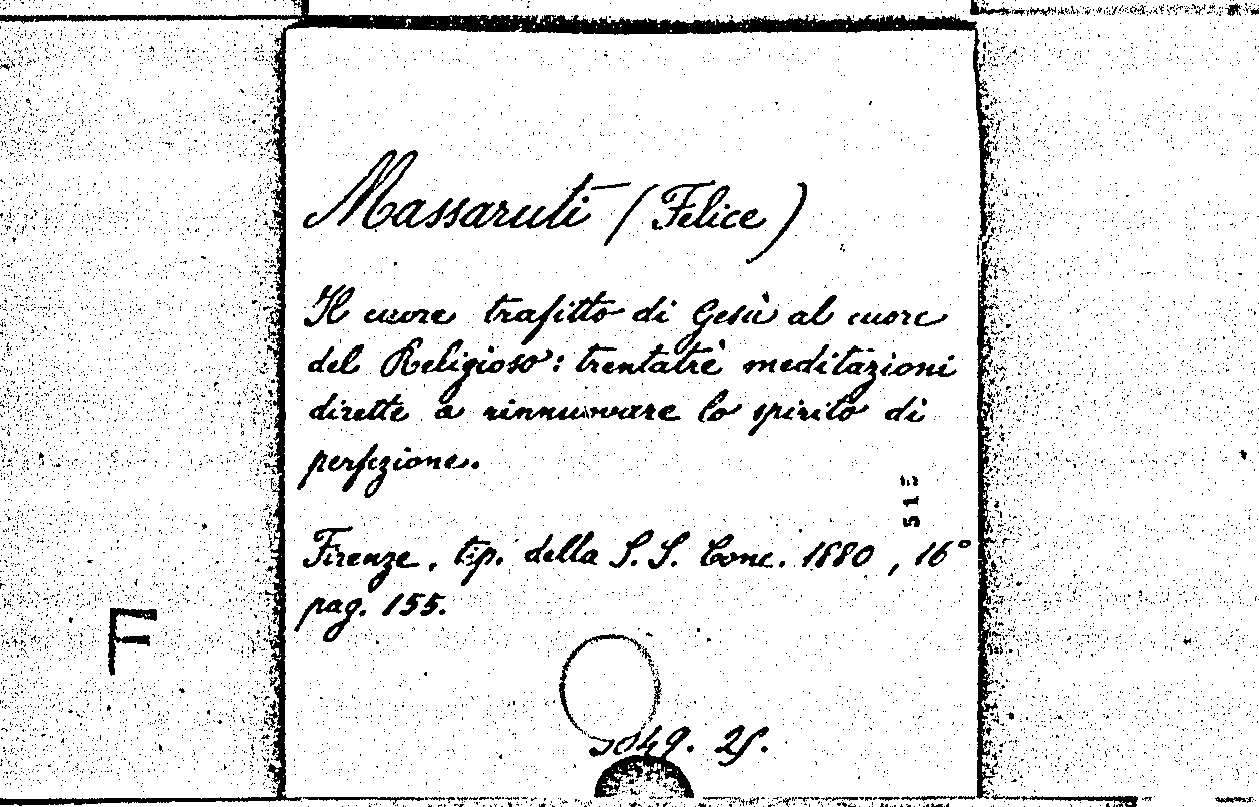 Massaruti (Felice)
Il cuore trafitto di Gesù al cuore
del Religioso: trentatrè meditazioni
dirette a rinnuovare lo spirito di
perfezione.
515
Firenze, tip. della S.S. Conc. 1880, 16°
pag. 155.
F
5049. 25.